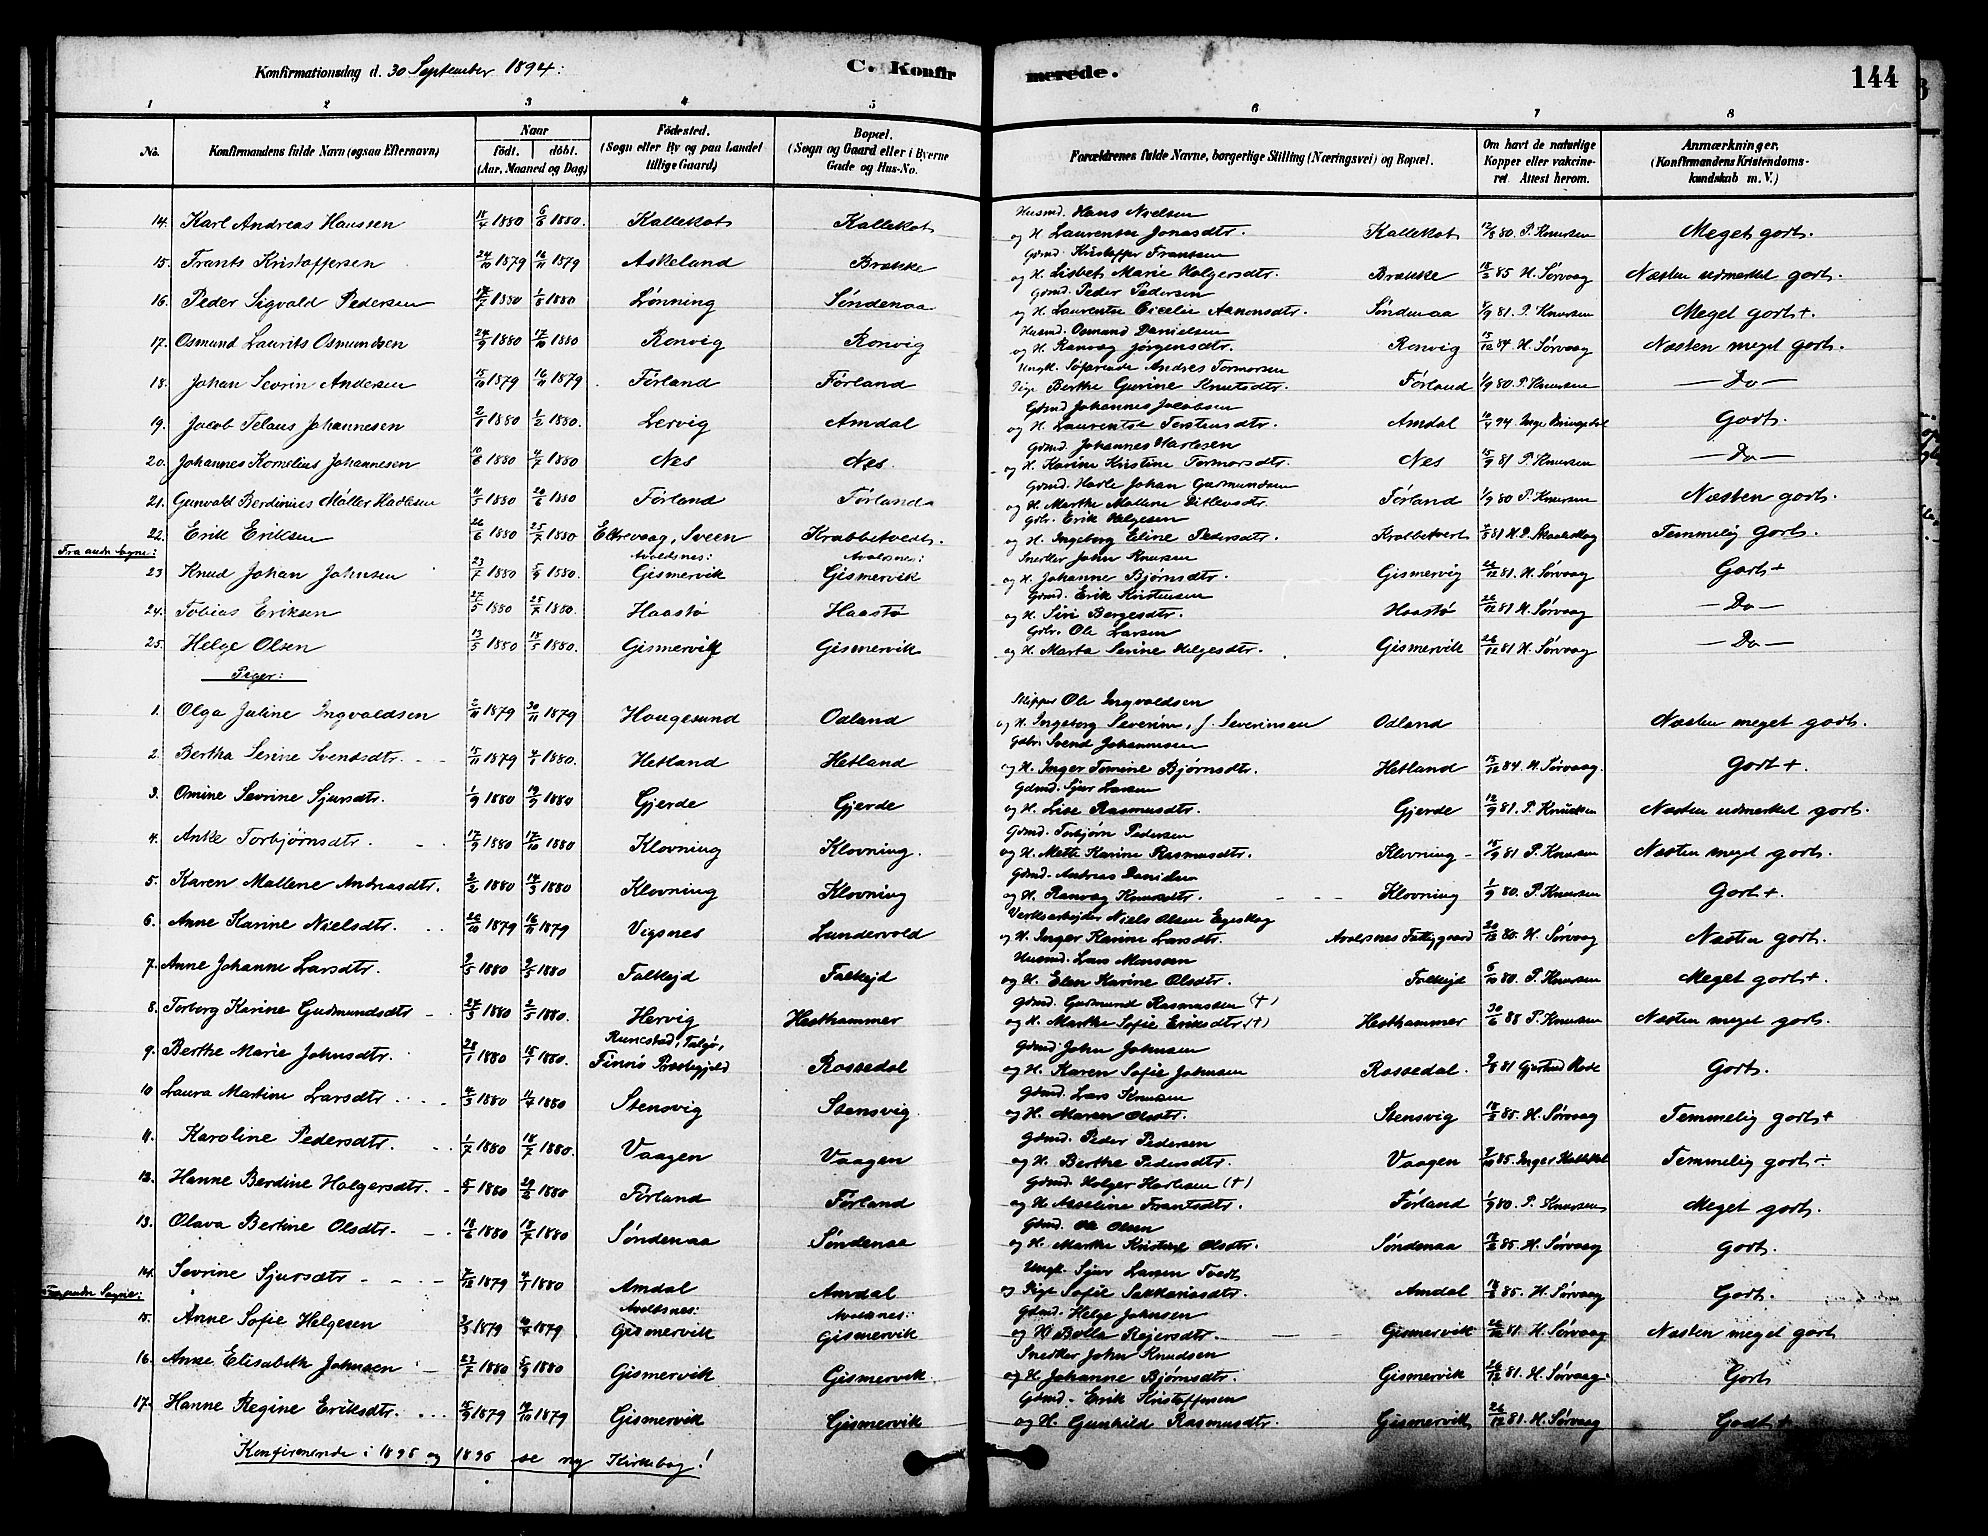 Konfirmationsdag d. 30 September 1894: C. Konfirmerede. 144
1 2 3 4 5 6 7 8
No. Konfirmandens fulde Navn (ogsaa Efternavn) Naar födt. döbt. (Aar, Maaned og Dag) Födested. (Sogn eller By og paa Landet tillige Gaard) Bopæl. (Sogn og Gaard eller i Byerne Gade og Hus-No. Forældrenes fulde Navne, borgerlige Stilling (Næringsvei) og Bopæl. Om havt de naturlige Kopper eller vakcineret. Attest herom. Anmærkninger. (Konfirmandens Kristendomskundskab m. V.)
Husmd. Hans Nielsen
14. Karl Andreas Hanssen 18/4 1880 6/5 1880. Kallekot Kallekot og H. Laurentse Jonasdtr. Kallekot 12/8 80. P. Knutsen Meget godt.
Gdmd. Kristoffer Frantsen
15. Frants Kristoffersen 24/10 1879 16/11 1879 Askeland Brække og H. Lisbet Marie Holgersdtr. Brække 18/2 85 H. Sørvaag Næsten udmerket godt.
Gdmd. Peder Pedersen
16. Peder Sigvald Pedersen 1880 1/8 1880 Lønning Søndenaa og H. Laurentse Cicelie Aanensdtr. Søndenaa 81. P. Knutsen Meget godt+.
Husmd. Osmund Danielsen
17. Osmund Laurits Osmundsen 24/9 1880 17/10 1880 Ronvig Ronvig og H. Ranvag Jørgensdtr. Ronvig 15/12 84. H. Sørvaag Næsten meget godt.
Ungk. Søfarende Andres Tormodsen
18. Johan Severin Andersen 15/10 1879 16/11 1879. Førland Førland Pige Berthe Gurine Knutsdtr. Førland 1/9 80. P. Knutsen — Do —
Gdmd. Johannes Jacobsen
19. Jacob Telaus Johannesen 2/1 1880 1/2 1880. Lervig Amdal og H. Laurentse Torstensdtr. Amdal 94. Godt.
Gdmd. Johannes Harlesen
20. Johannes Kornelius Johannesen 10/6 1880 4/7 1880 Nes Nes og H. Karine Kristine Tormodsdtr. Nes 15/9 81 P. Knutsen — Do —
Gdmd. Harle Johan Gudmundsen
21. Gunvald Berdinius Møller Hadlesen 11/5 1880 20/6 1880 Førland Førland og H. Marthe Mallene Ditlevsdtr. Førland 1/9 80 P. Knutsen Næsten godt.
Gdbr. Erik Helgesen
22. Erik Eriksen 26/6 1880 25/7 1880 Eltrevaag, Sveen Krabbetvedt. og H. Ingeborg Eline Pedersdtr. Krabbetvedt 81 Temmelig godt.
Fra andre Sogne: Avaldsnes: Avaldsnes: Snedker John Knutsen
23 Knud Johan Johnsen 23/7 1880 5/9 1880. Gismervik Gismervik og H. Johanne Bjørnsdtr. Gismervig 26/12 81. H. Sørvaag Godt+
Gdmd. Erik Kristensen
24. Tobias Eriksen 27/5 1880 25/7 1880. Haastø Haastø og H. Siri Borgesdtr. Haastø 26/12 81 H. Sørvaag — Do —
Gdbr. Ole Larsen
25. Helge Olsen 13/5 1880 18/5 1880. Gismervik Gismervik og H. Marta Serine Helgesdtr. Gismervik 26/12 81 H. Sørvaag — Do —
Piger:
Skipper Ole Ingvaldsen
1. Olga Juline Ingvaldsen 2/11 1879 30/11 1879 Haugesund Odland og H. Ingeborg Severine, f. Severinsen Odland Næsten meget godt.
Gdbr. Svend Johannessen
2. Bertha Serine Svendsdtr. 15/11 1879 4/1 1880. Hetland Hetland og H. Inger Tomine Bjørnsdtr. Hetland 15/12 84. H. Sørvaag. Godt+.
Gdmd. Sjur Larsen
3. Omine Sevrine Sjursdtr. 1/9 1880 19/9 1880 Gjerde Gjerde og H. Lise Rasmusdtr. Gjerde 12/9 81. P. Knudsen Næsten udmerket godt.
Gdmd. Torbjørn Pedersen
4. Anke Torbjørnsdtr. 17/9 1880 17/10 1880 Klovning Klovning. og H. Mette Karine Rasmusdtr. Klovning 15/9 81 P. Knutsen Næsten meget godt.
Gdmd. Andreas Danielsen
5. Karen Mallene Andreasdtr. 2/2 1880 14/3 1880 Klovning Klovning og H. Ranvag Knutsdtr. Klovning 1/9 80. P. Knutsen Godt+.
Verksarbejder Niels Olsen Egeskog
6. Anne Karine Nielsdtr. 20/10 1879 16/11 1879 Vigsnes Lundervold og H. Inger Karine Larsdtr. Avaldsnes Fattiggaard 20/12 80. H. Sørvaag Næsten godt.
Husmd. Lars Monssen
7. Anne Johanne Larsdtr. 2/5 1880 9/5 1880 Falkejd Falkejd og H. Elen Karine Olsdtr. Falkejd 6/10 80. P. Knutsen Meget godt+.
Gdmd. Gudmund Rasmussen (+)
8. Torborg Karine Gudmundsdtr 24/3 1880 2/5 1880. Hervig Hesthammer og H. Marthe Sofie Eriksdtr. (+) Hesthammer 30/6 88 P. Knutsen Næsten meget godt.
Runestad, Talgø, Gdmd John Johnsen
9. Berthe Marie Johnsdtr. 28/1 1880 18/1 1880. Finnø Præstegjeld Rossedal og H. Karen Sofie Johnsen Rossedal. 81 Godt.
Gdmd. Lars Knutsen
10 Laura Martine Larsdtr 4/3 1880 11/4 1880 Stensvig Stensvig. og H. Maren Olsdtr. Stensvig 18/2 85. H. Sørvaag Temmelig godt+
Gdmd. Peder Pedersen
11. Karoline Pedersdtr. 1/7 1880 18/7 1880. Vaagen Vaagen og H. Berthe Pedersdtr. Vaagen 85. Inger Kallekot Temmelig godt÷
Gdmd. Holger Harlesen (+)
12. Hanne Berdine Holgersdtr. 5/1 1880 29/2 1880 Førland Førland og H. Asseline Frantsdtr. Førland 1/9 80. P. Knutsen Meget godt.
Gdmd. Ole Olsen
13. Olava Bertine Olsdtr. 18/6 1880 18/7 1880 Søndenaa Søndenaa og H. Marthe Kristine Olsdtr. Søndenaa 18/2 85. H. Sørvaag Godt.
Ungk. Sjur Larsen Tvedt
14. Sevrine Sjursdtr 7/12 1879 4/1 1880 Amdal Amdal og Pige Sofie Sakkariasdtr. Amdal 18/2 85. H. Sørvaag Godt.
Fra andre Sogne: Avaldsnes: Avaldsnes: Gdmd. Helge Johnsen
15. Anne Sofie Helgesen 2/3 1879 14/4 1879. Gismervik Gismervik og H. Bolla Rejersdtr. Gismervik 26/12 81. H. Sørvaag Næsten meget godt
Snedker John Knudsen
16. Anne Elisabeth Johnsen 23/7 1880 5/9 1880 Gismervik Gismervik og H. Johanne Bjørnsdtr. Gismervik 26/12 81. H. Sørvaag. Godt
Gdmd. Erik Kristoffersen
17. Hanne Regine Eriksdtr. 15/9 1879 14/10 1879 Gismervik Gismervik og H. Gunhild Rasmusdtr. Gismervik 26/12 81. H. Sørvaag Godt+
Konfirmerede i 1895 og 1896 se ny Kirkebog!